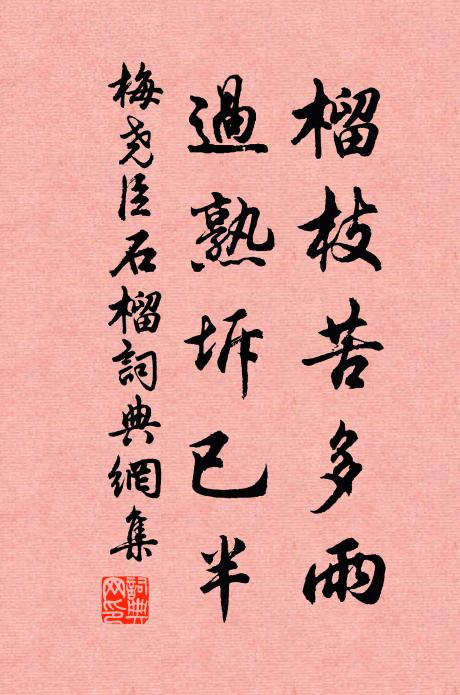 榴枝苦多雨
過熟坼已半
梅尧臣石榴詞典網集
詞典網印